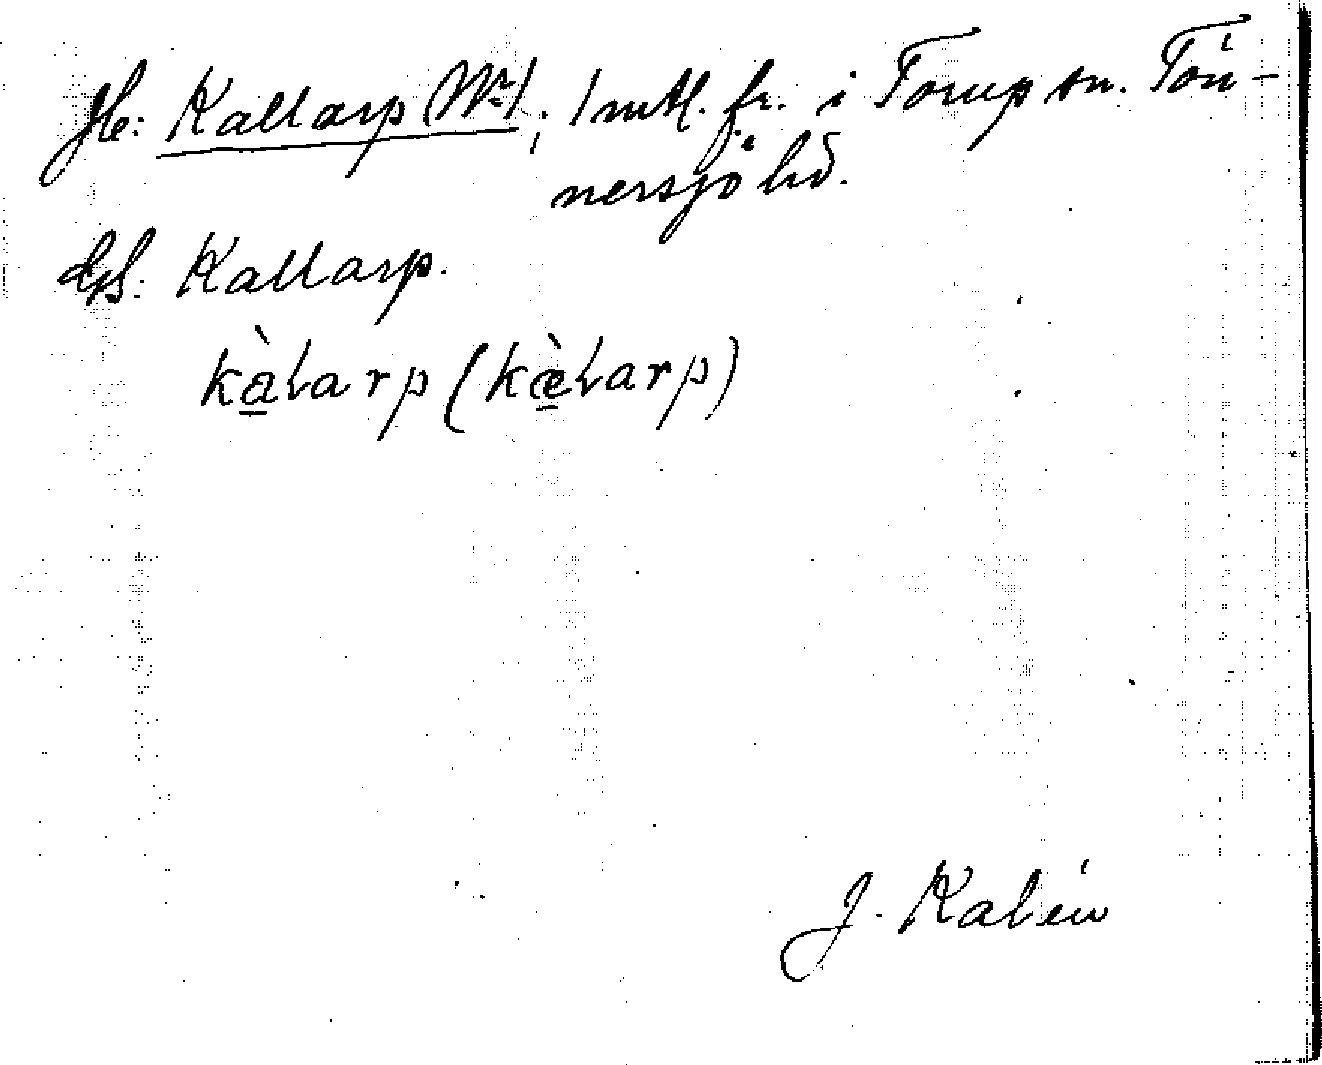 Jfr: Kallarp (Wr), 1 mtl. fr. i Torup sn. Tön-
nersjö hd.
Kallarp.
kàlarp (kælarp)
J. Kalén